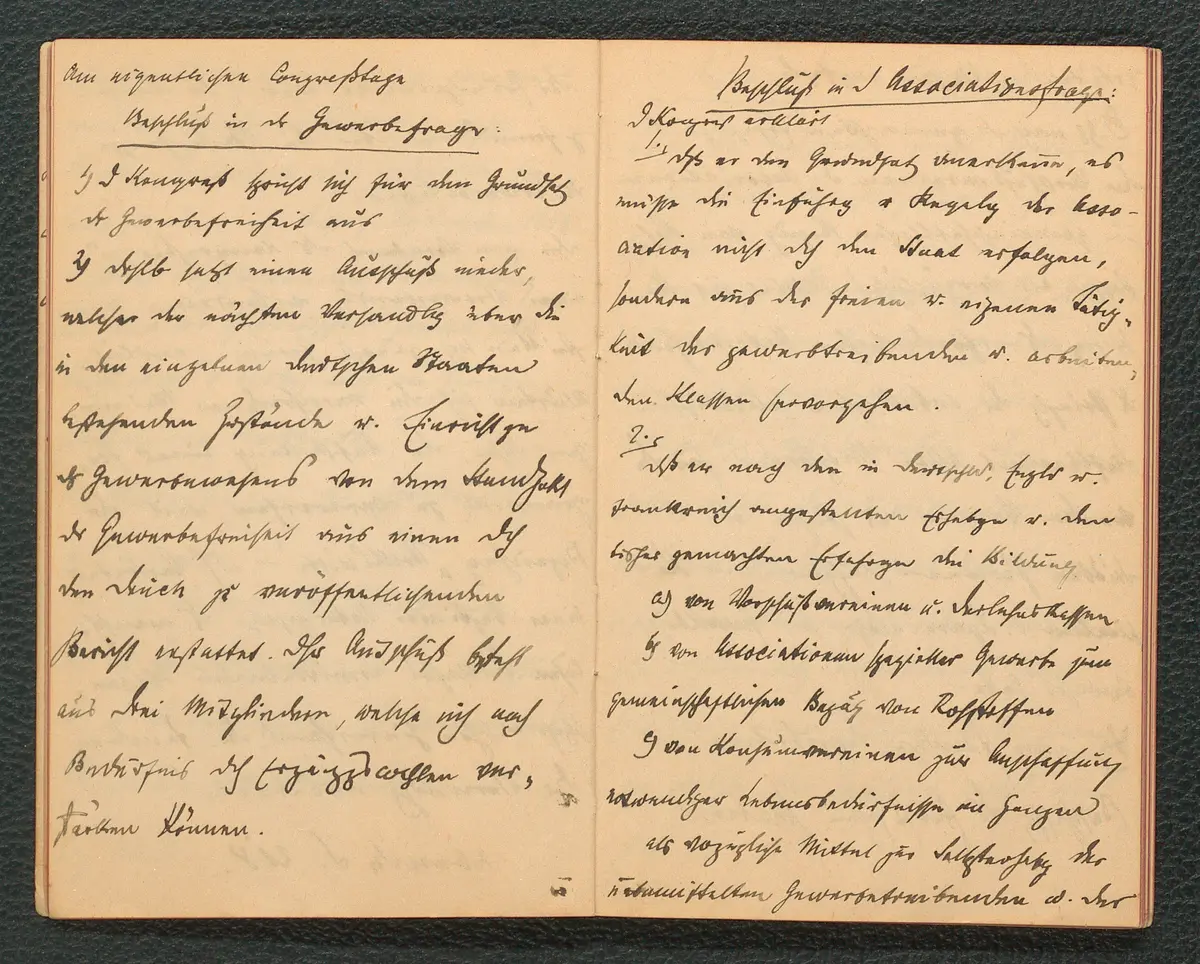 Am eigentlichen Congreßtage
Beschluß in dr Gewerbefrage:
1) D Kongreß spricht sich für den Grundsatz
dr Gewerbefreiheit aus
2) deshlb setzt einen Ausschuß nieder,
welcher der nächsten Versandlg über die
in den einzelnen deutschen Staaten
bestehenden Zustände u. Einrichtgen
ds Gewerbewesens von dem Standpkt
dr Gewerbefreiheit aus einen dch
den Druck zu veröffentlichenden
Bericht erstattet. Dsr Ausschuß besteht
aus drei Mitgliedern, welche sich nach
Bedürfnis dch Ergänzgswahlen ver-
stärken können.
Beschluß in d Associationsfrage:
D Kongreß erklärt
1.) dß er den Grundsatz anerkenne, es
müsse die Einführg u Regelg der Asso-
ciation nicht dch den Staat erfolgen,
sondern aus der freien u. eigenen Tätig-
keit der gewerbtreibenden u. arbeiten-
den Klassen hervorgehen.
2.)
dß er nach den in Deutschld, Engld u.
Frankreich angestellten Erhebgn u. den
bisher gemachten Erfahrgn die Bildung
a) von Vorschußvereinen u. Darlehnskassen
b) von Associationen spezieller Gewerbe zum
gemeinschaftlichen Bezug von Rohstoffen
c) von Konsumvereinen zur Anschaffung
notwendiger Lebensbedürfnisse im Ganzen
als vorzügliche Mittel zur Selbsterhebg der
unbemittelten Gewerbetreibenden u. der